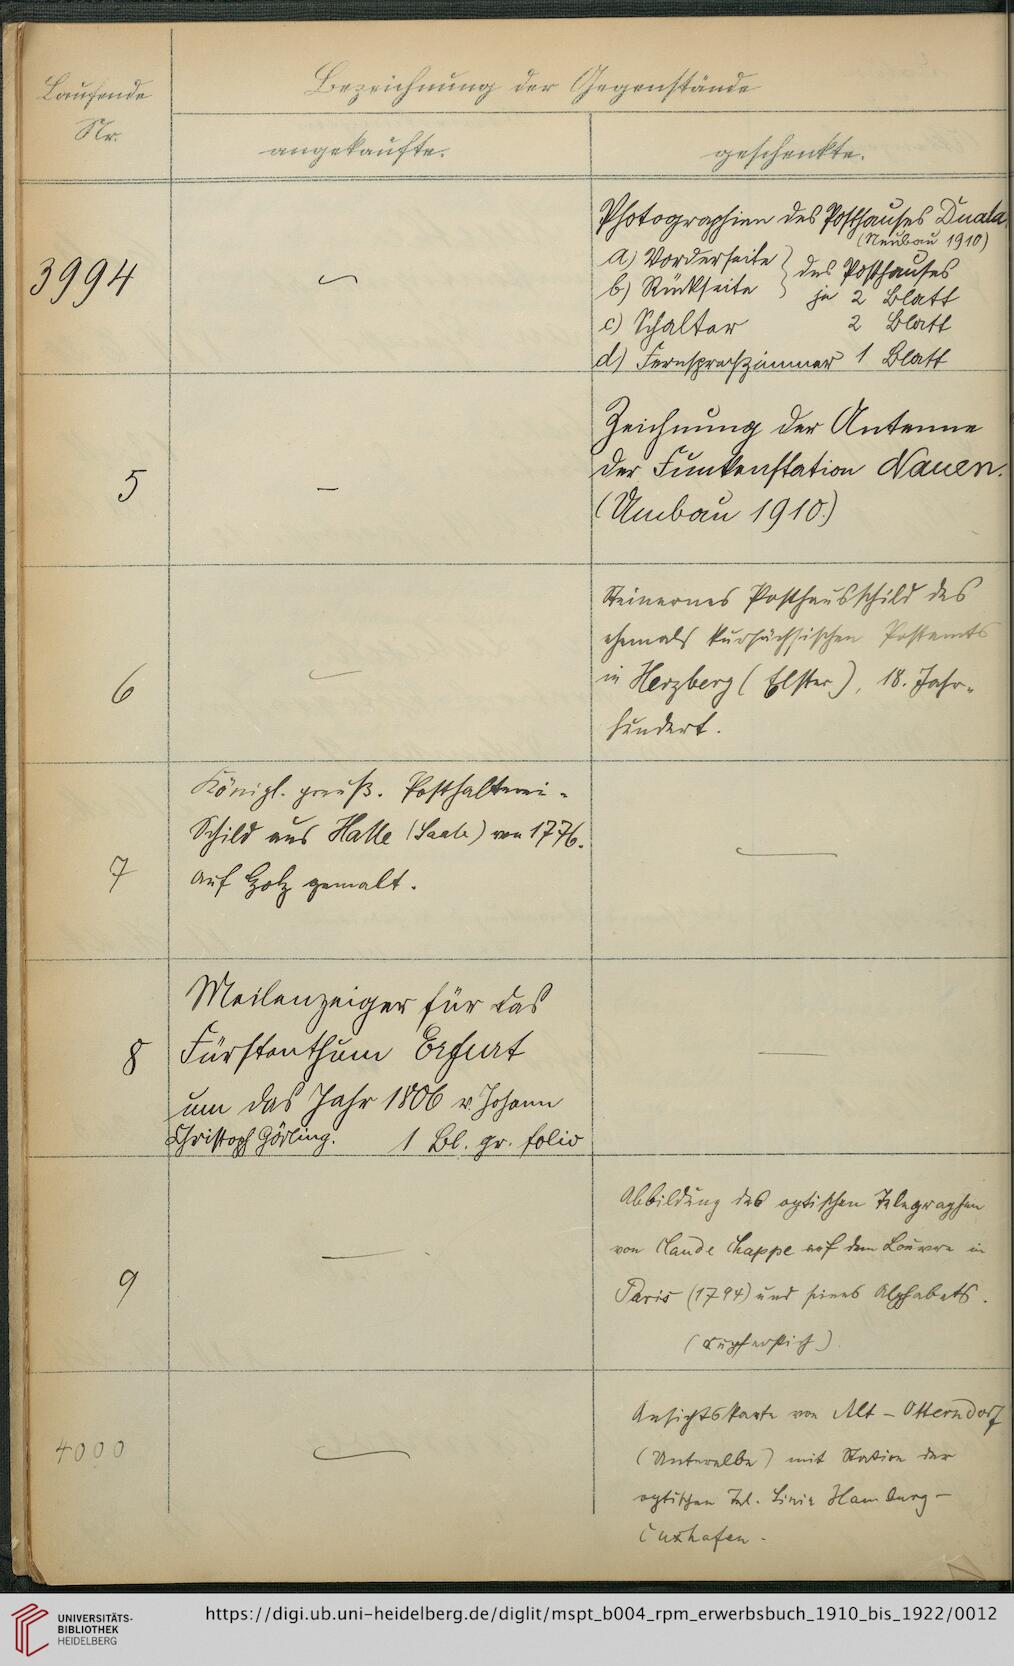 Laufende
Nr.
Bezeichnung der Gegenstände
angekaufte.
geschenkte.
3994
Photographien des Posthauses Duala
(Neubau 1910)
a) Vorderseite } des Posthauses
b) Rückseite } je 2 Blatt
c) Schalter 2 Blatt
d) Fernsprechzimmer 1 Blatt
5
–
Zeichnung der Antenne
der Funkenstation Nauen.
(Umbau 1910.)
6
Steinernes Posthausschild des
ehemals kursächsischen Postamts
in Herzberg (Elster), 18. Jahr-
hundert.
7
Königl. preuß. Posthalterei-
Schild aus Halle (Saale) von 1776.
Auf Holz gemalt.
8
Meilenzeiger für das
Fürstenthum Erfurt
um das Jahr 1806 v. Johann
Christoph Görling. 1 Bl. gr. folio
9
Abbildung des optischen Telegraphen
von Claude Chappe auf dem Louvre in
Paris (1794) und seines Alphabets.
(Kupferstich)
4000
Ansichtskarte von Alt-Otterndorf
(Unterelbe) mit Station der
optischen Tel. Linie Hamburg-
Cuxhafen.
UNIVERSITÄTS-
BIBLIOTHEK
HEIDELBERG
https://digi.ub.uni-heidelberg.de/diglit/mspt_b004_rpm_erwerbsbuch_1910_bis_1922/0012